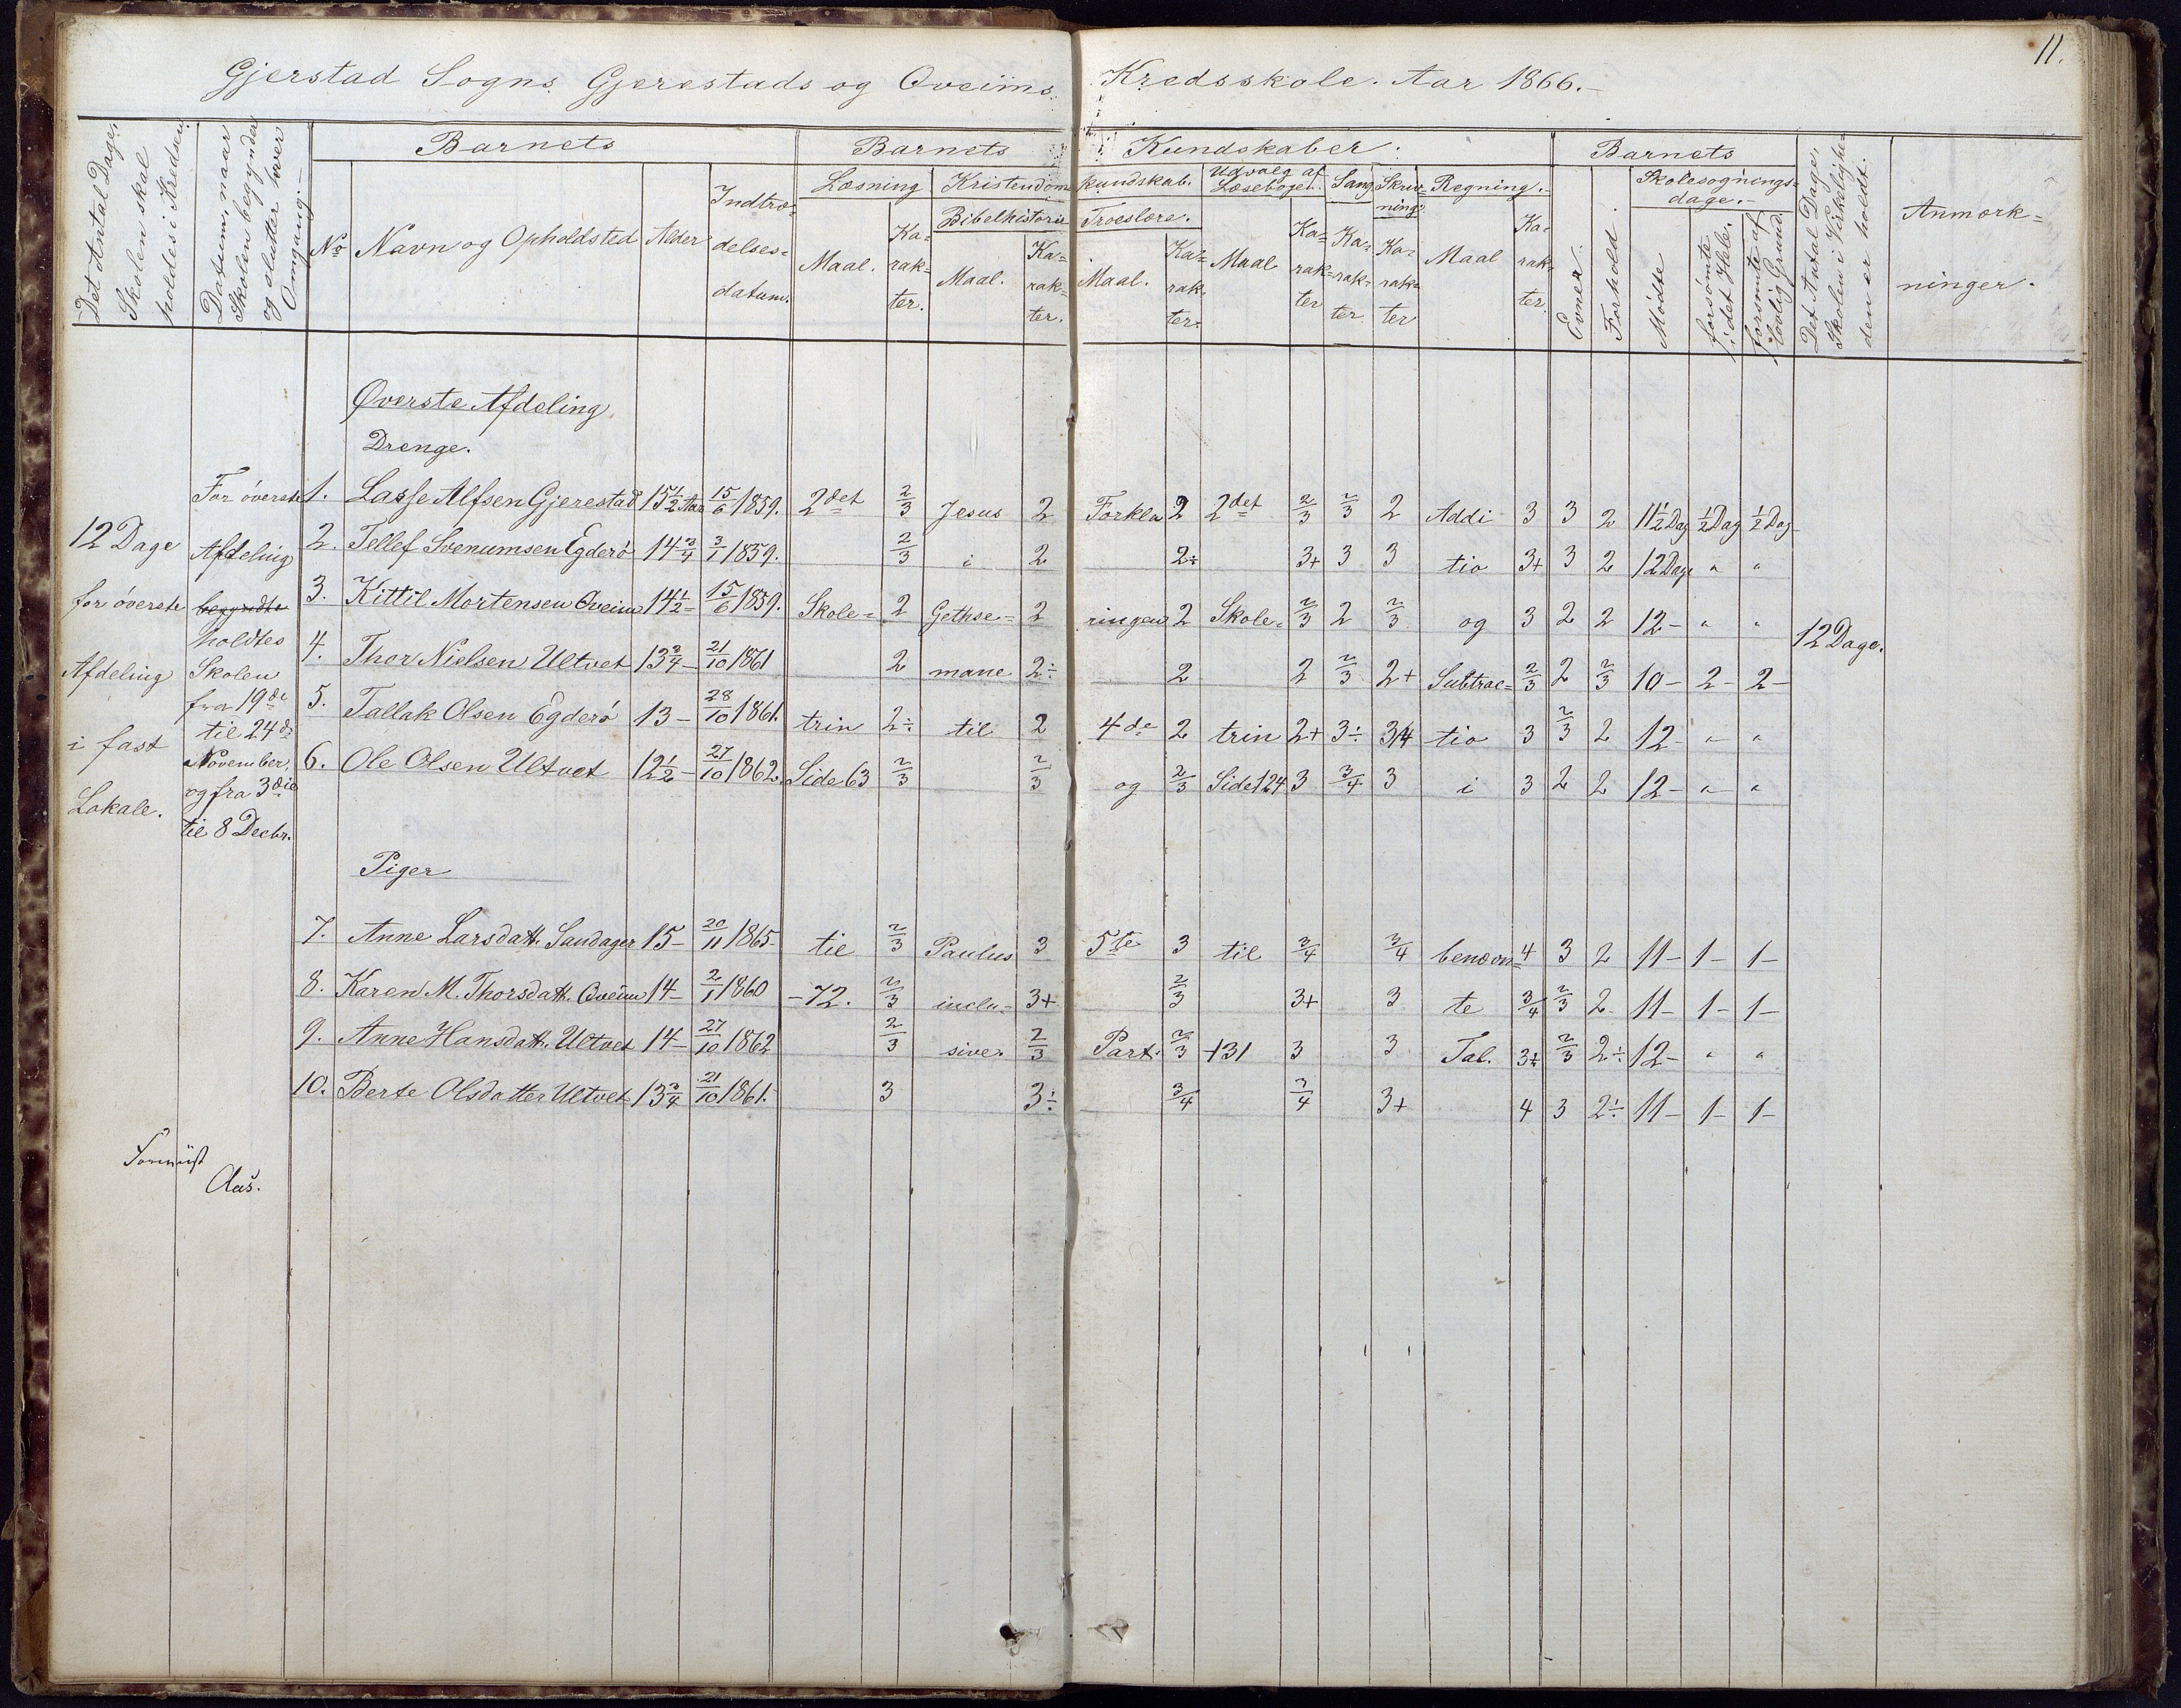 11.
Gjerstad Sogns Gjerestads og Qveims Kredsskole. Aar 1866.-
Det Antal Dage, Skolen skal holdes i Kredsen.
Datum, naar Skolen begynder og slutter hver Omgang.-
Barnets
No
Navn og Opholdsted
Alder
Indtræ-
delses-
datum.
Barnets Kundskaber.
Læsning
Maal.
Ka-
rak-
ter.
Kristendoms kundskab.
Bibelhistorie
Maal.
Ka-
rak-
ter.
Troeslære.
Maal.
Ka-
rak-
ter.
Udvalg af
Læsebogen.
Maal
Ka-
rak-
ter
Sang
Ka-
rak-
ter
Skriv-
ning
Ka-
rak-
ter
Regning.-
Maal
Ka-
rak-
ter.
Barnets
Evner.
Forhold.
Skolesøgnings-
dage.-
Mødte
forsømte i det Hele.
forsømte af lovlig Grund
Det Antal Dage, Skolen i Virkelighe-
den er holdt.
Anmærk-
ninger.
Øverste Afdeling
Drenge.
12 Dage
for øverste
Afdeling
i fast
Lokale.
For øverste
Afdeling
begyndte
holdtes
Skolen
fra 19de
til 24de
November,
og fra 3die
til 8 Decbr.
1. Lasse Alfsen Gjerestad 15 1/2 Aar 15/6 1859. 2det 2/3 Jesus 2 Forkla 2 2det 2/3 2/3 2 Addi 3 3 2 11 1/2 Dag 1/2 Dag 1/2 Dag
2. Tellef Svenumsen Egderø 14 3/4 3/1 1859. 2/3 i 2 2÷ 3+ 3 3 tio 3+ 3 2 12 Dage " "
3. Kittil Mortensen Qveim 14 1/2 - 15/6 1859. Skole- 2 Gethse- 2 ringen 2 Skole- 2/3 2 2/3 og 3 2 2 12- " " 12 Dage.
4. Thor Nielsen Ultvet 13 3/4 - 21/10 1861 2 mane 2÷ 2 2 2/3 2+ Subtrac- 2/3 2 2/3 10- 2- 2-
5. Tallak Olsen Egderø 13- 28/10 1861. trin 2÷ til 2 4de 2 trin 2+ 3÷ 3/4 tio 3 2/3 2 12- " "
6. Ole Olsen Ultvet 12 1/2 - 27/10 1862. Side 63 2/3 2/3 og 2/3 Side 124 3 3/4 3 i 3 2 2 12- " "
Piger
7. Anne Larsdatt. Sandager 15- 20/11 1865- til 2/3 Paulus 3 5te 3 til 3/4 3/4 benævn- 4 3 2 11- 1- 1-
8. Karen M. Thorsdatt. Qveim 14- 2/1 1860 -72. 2/3 inclu- 3+ 2/3 3+ 3 te 3/4 2/3 2 11- 1- 1-
9. Anne Hansdatt. Ultvet 14- 27/10 1862 2/3 sive. 2/3 Part. 2/3 +131 3 3 Tal. 3+ 2/3 2÷ 12- " "
10. Berte Olsdatter Ultvet 13 3/4 21/10 1861. 3 3÷ 3/4 3/4 3+ 4 3 2÷ 11- 1- 1-
Aas.